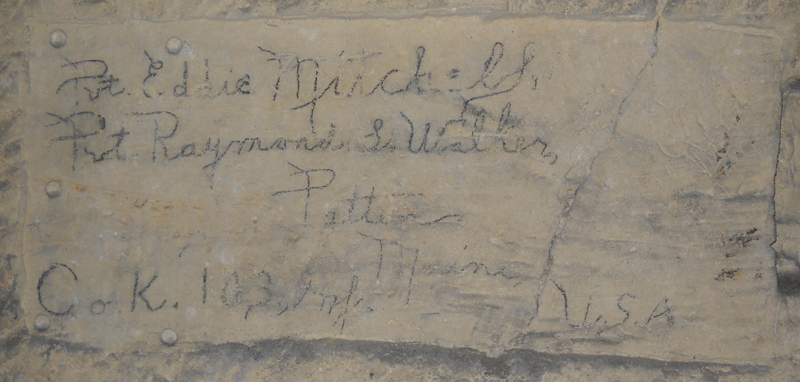 Pvt. Eddie Mitchell.
Pvt. Raymond L. Walker,
Patten
Maine
Co. K. 103, Inf. U.S.A